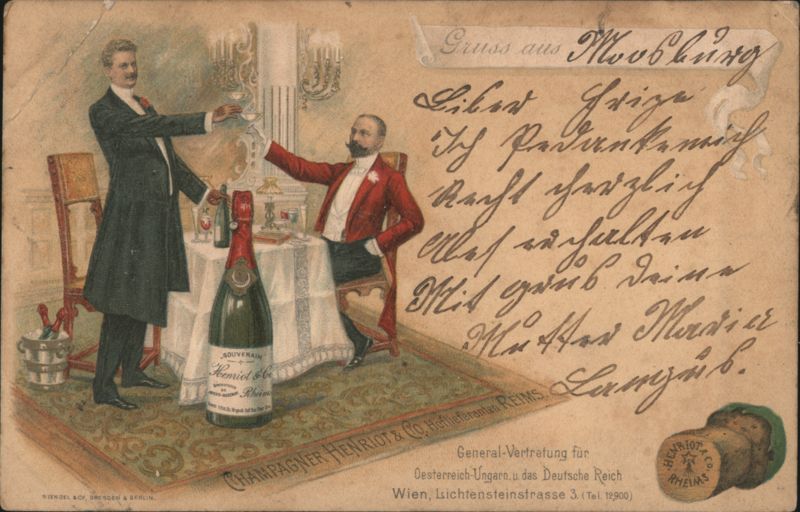 Gruss aus Moosburg
Liber Frizα
Ich Pedanke mich
Recht cherzlich
Ales erhalten
Mit grus Deine
Mutter Maria
Langus.
SOUVERAIN
Henriot & Co
Rheims
CHAMPAGNER HENRIOT & CO, Hoflieferanten REIMS.
General-Vertretung für
Oesterreich-Ungarn u. das Deutsche Reich
Wien, Lichtensteinstrasse 3. (Tel. 12,900)
HENRIOT & CO
RHEIMS
RIENGEL & CO, DRESDEN & BERLIN.